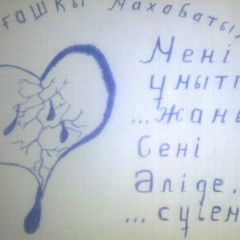 ғашқы махабаты
Мені
ұмытп
...жаны
Сені
Әліде.
...сүіем